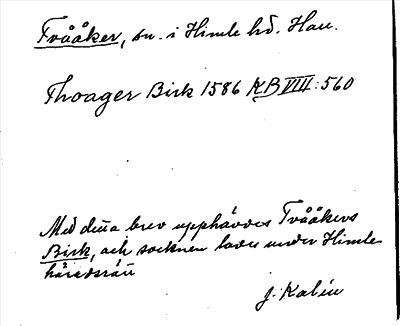 Tvååker, sn. i Himle hd. Hall.
Thoager Birk 1586 KB VIII:560
Med detta brev upphävdes Tvååkers
Birk, och socknen lades under Himle
häradsrätt
J. Kalén